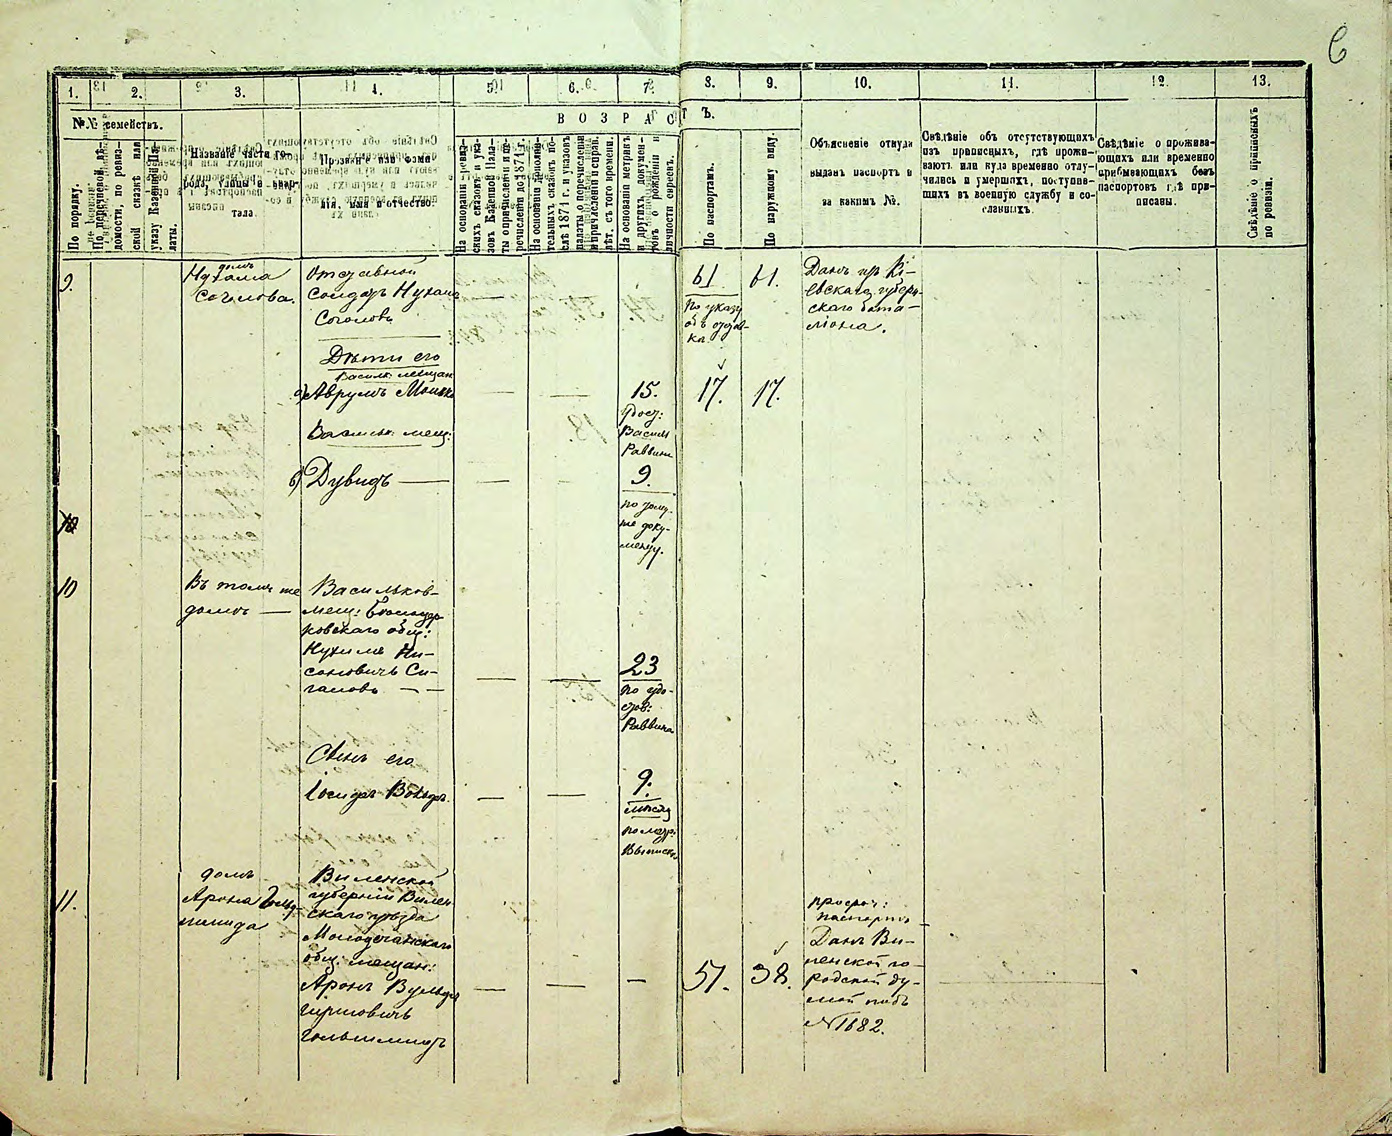 6
1. 2. 3. 4. 5. 6. 7. 8. 9. 10. 11. 12. 13.
№№ семействъ.
В О З Р А С Т Ъ.
По порядку.
ской сказкѣ или
указу Казенной Па-
латы.
Названіе части
рода, улицы и
тала.
Прозваніе или
имя и отчество.
На основаніи ревиз-
скихъ сказокъ, ука-
зовъ Казенной Пала-
ты о причисленіи и пе-
речисленіи до 1871 г.
На основаніи дополни-
тельныхъ сказокъ по-
слѣ 1871 г. и указовъ
палаты о перечисленіи
и причисленіи и справ.
лѣт. съ того времени.
На основаніи метрикъ
и другихъ докумен-
товъ о рожденіи и
личности евреевъ.
По паспортамъ.
По наружному виду.
Объясненіе откуда
выданъ паспортъ и
за какимъ №.
Свѣдѣніе объ отсутствующихъ
изъ приписныхъ, гдѣ прожи-
ваютъ или куда временно отлу-
чились и умершихъ, поступив-
шихъ въ военную службу и со-
сланныхъ.
Свѣдѣніе о прожива-
ющихъ или временно
прибывающихъ безъ
паспортовъ гдѣ при-
писаны.
Свѣдѣніе о пришенныхъ
по ревизіи.
9.
домъ
Нухима
Соголова.
Отставной
Солдатъ Нухим
Соголовъ
61
По указу
объ отстав-
ка
61.
Данъ изъ Кі-
евскаго губерн-
скаго бата-
ліона.
Дѣти его
Васильк мещан
а) Аврумъ Мошко — — 15. 17. 17.
Васильк. мещ:
Удост:
Василь
Раввин
б) Дувидъ — — — 9.
по тому
же доку-
менту.
10
10
Въ томъ же
домѣ —
Васильков-
мещ:
ровскаго общ:
Нухимъ Ни-
соновичъ Си-
галовъ — —
— — 23
по удо-
стов:
Раввина
Сынъ его
Іосифъ Вольфъ. — — 9.
по метр:
Выписки
11.
домъ
Арона Гольд-
шмида
Виленской
губерніи Вилен
скаго уѣзда
Молодечанскаго
общ: мещан:
Аронъ Вульфъ
Гиршовичъ
Гольдшмидъ
— — — 51. 38.
просроч:
паспортъ
Данъ Ви-
ленской го-
родской ду-
мой подъ
№ 1682.